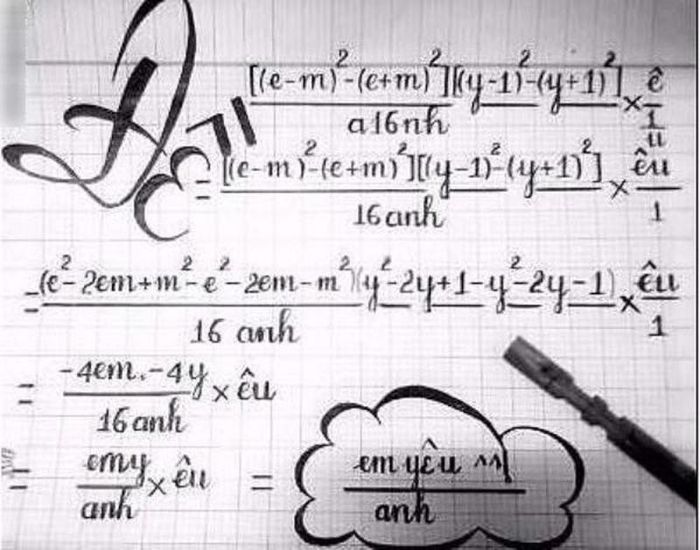 A = [(e-m)²-(e+m)²][(y-1)²-(y+1)²] / a16nh × ê / (1/u)
= [(e-m)²-(e+m)²][(y-1)²-(y+1)²] / 16anh × êu / 1
= (e²-2em+m²-e²-2em-m²)(y²-2y+1-y²-2y-1) / 16 anh × êu / 1
= -4em.-4y / 16anh × êu
= emy / anh × êu = em yêu ^^ / anh